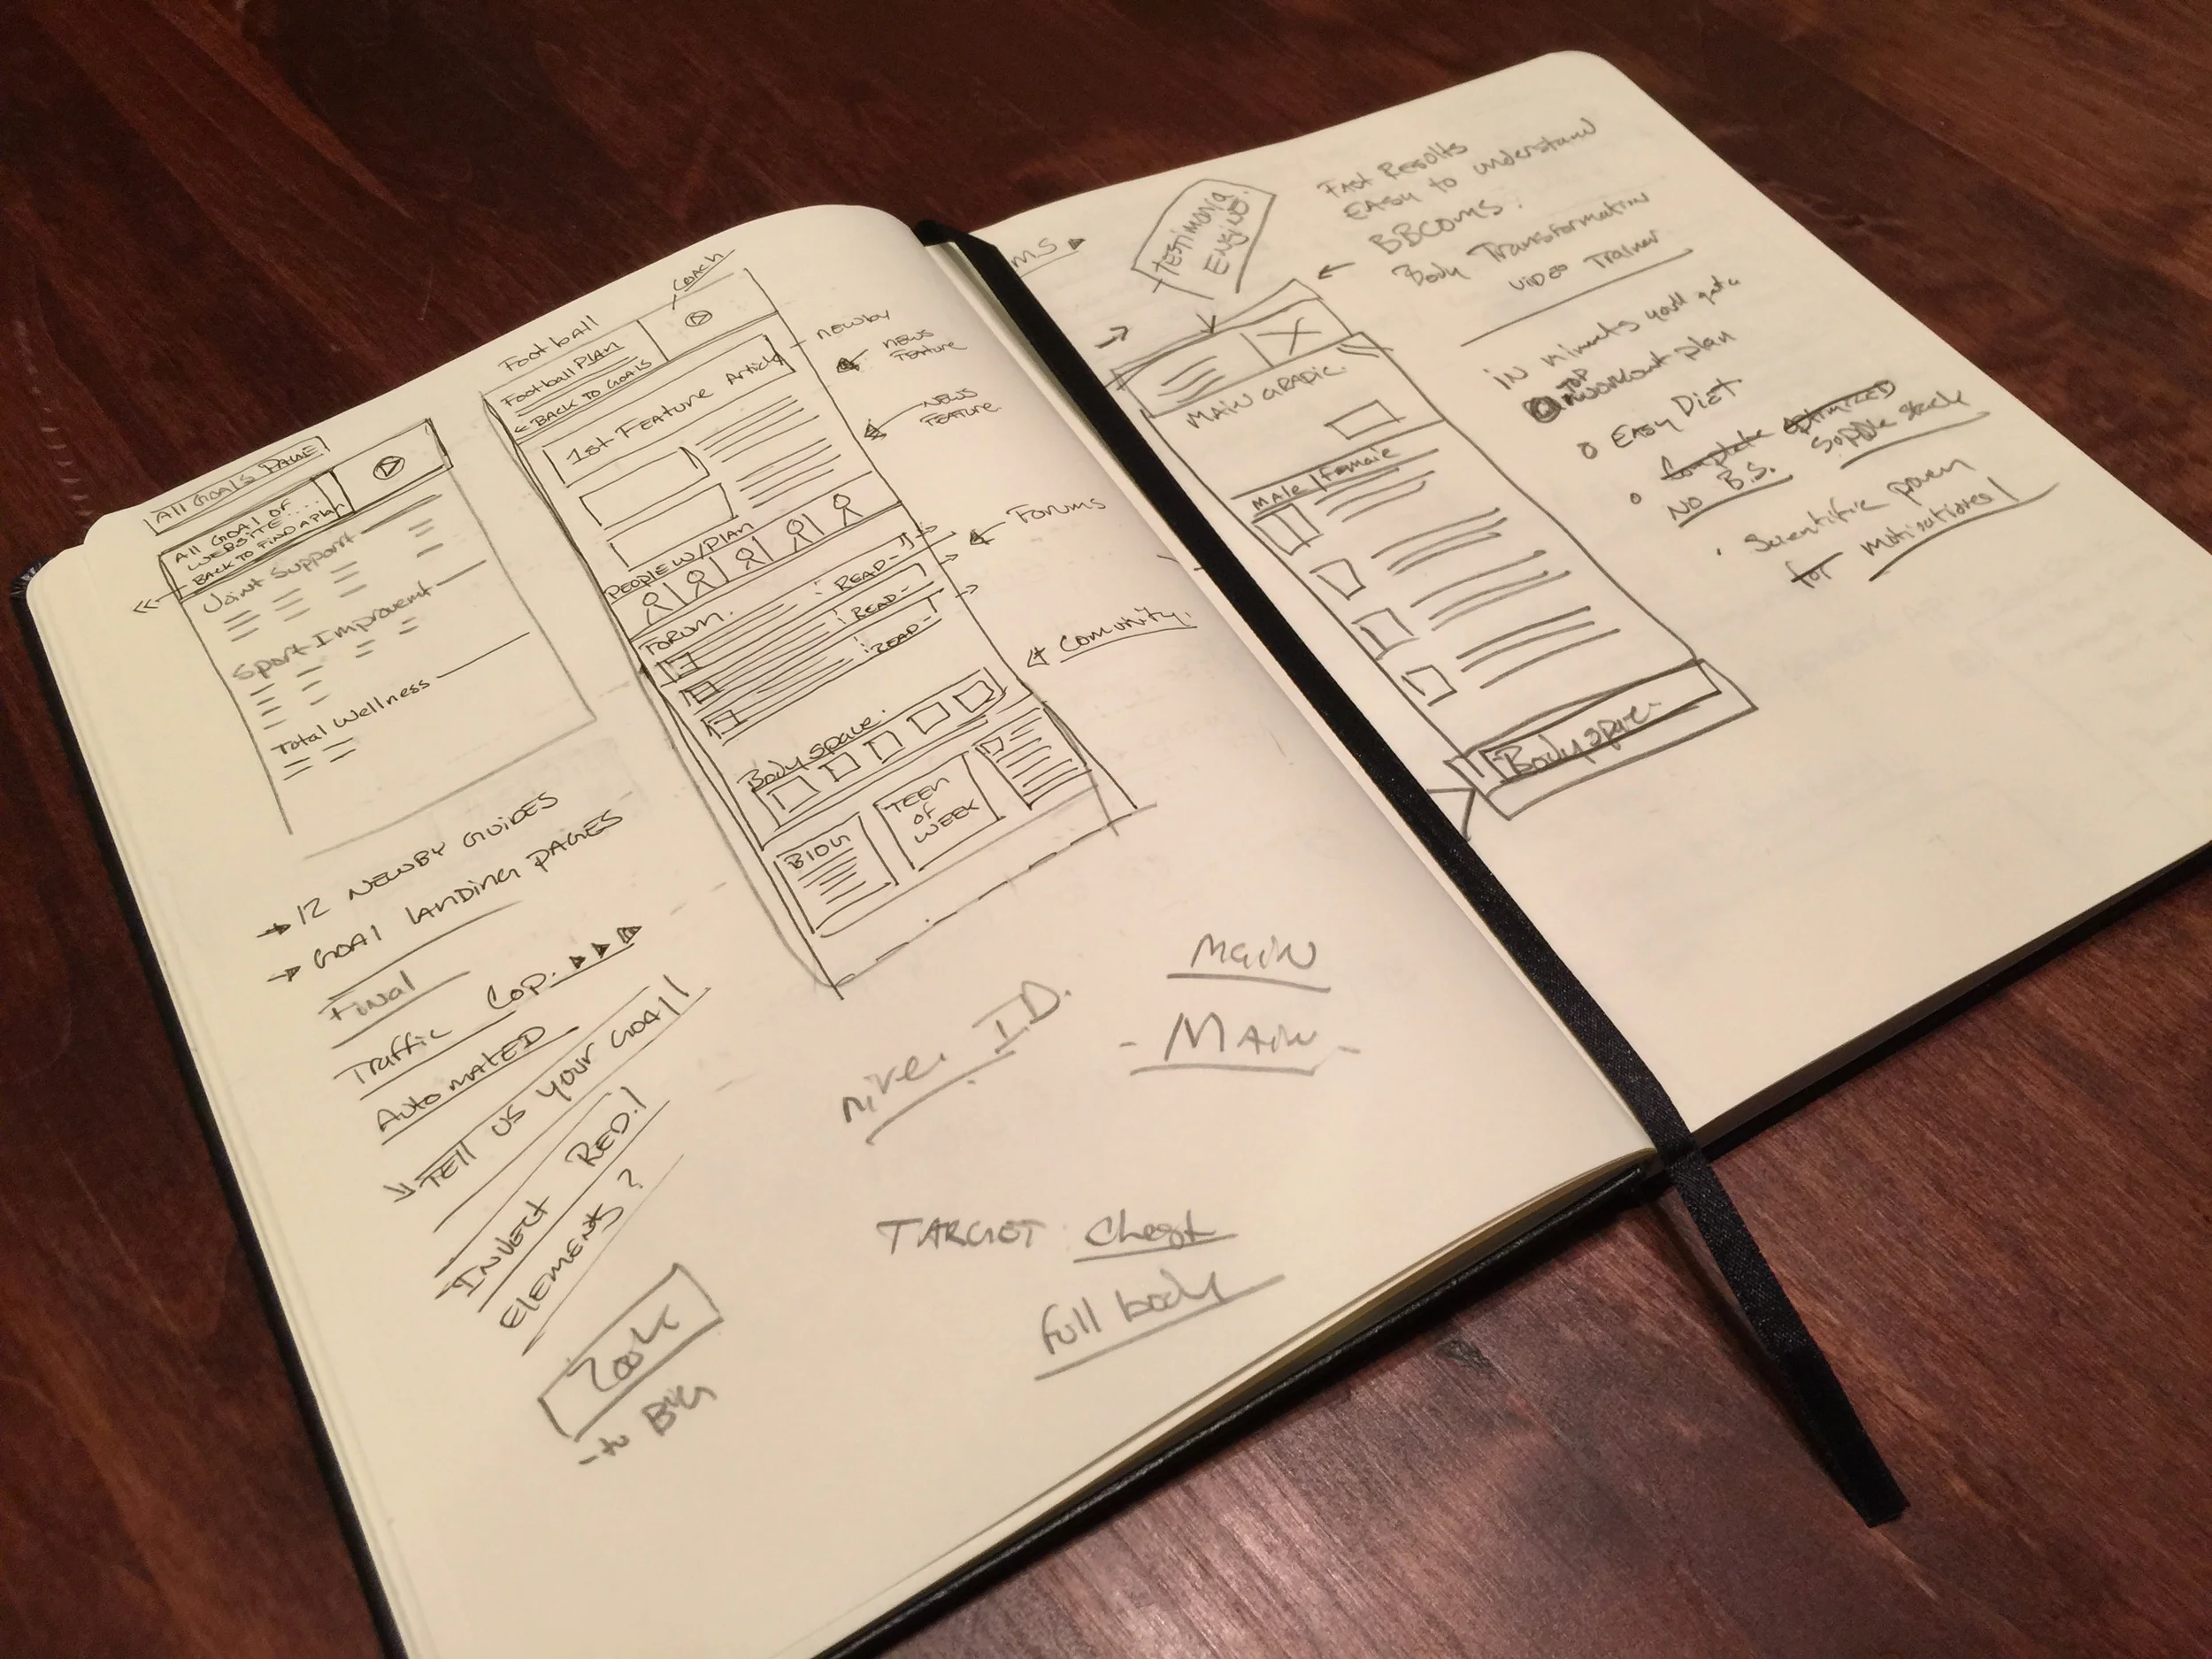 All Goals Page
All Goal of
Website...
Back to find a plan
Joint Support
Sport Improvemt
Total Wellness
→ 12 Newby Guides
→ Goal landing pages
Final
Traffic Cop.
Automated
Tell us your Goal!
Invect Red!
Elements?
Look
- to Big
Football
Coach
Football Plan
< Back to Goals
1st Feature Article
People w/Plan
Forum.
Read -
Read -
Read -
Bodyspace.
Teen
of
Week
newby
News
Feature
News
Feature
Forums
Comunity.
I.D.
Main
- Main -
Target Chest
full body
ms
Testimonia
Engine.
Main Grapic.
Male / Female
Bodyspace.
Fast Results
Easy to understand
BBcoms.
Body Transformation
Video Trainer
In minuts you'll get a
TOP
workout plan
Easy Diet
Complete Optimized
No B.S. Supple stack
Scientific proven
for motivational